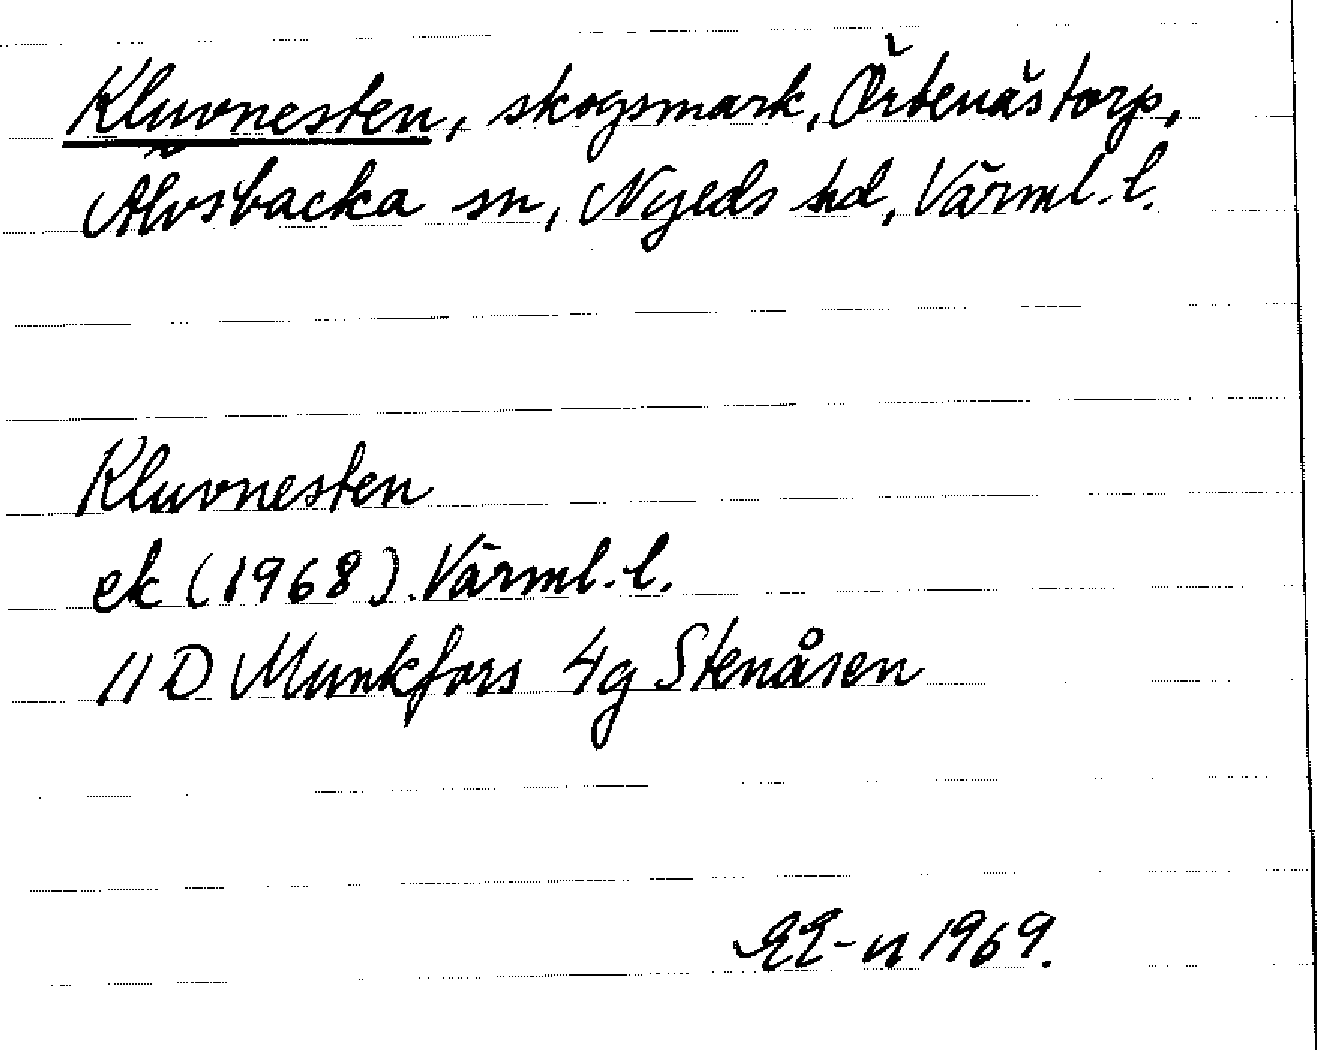 Kluvnesten, skogsmark, Örtenästorp,
Älvsbacka sn, Nyeds hd, Värml. l.
Kluvnesten
ek (1968). Värml. l.
11 D Munkfors 4g Stenåsen
EE-n 1969.